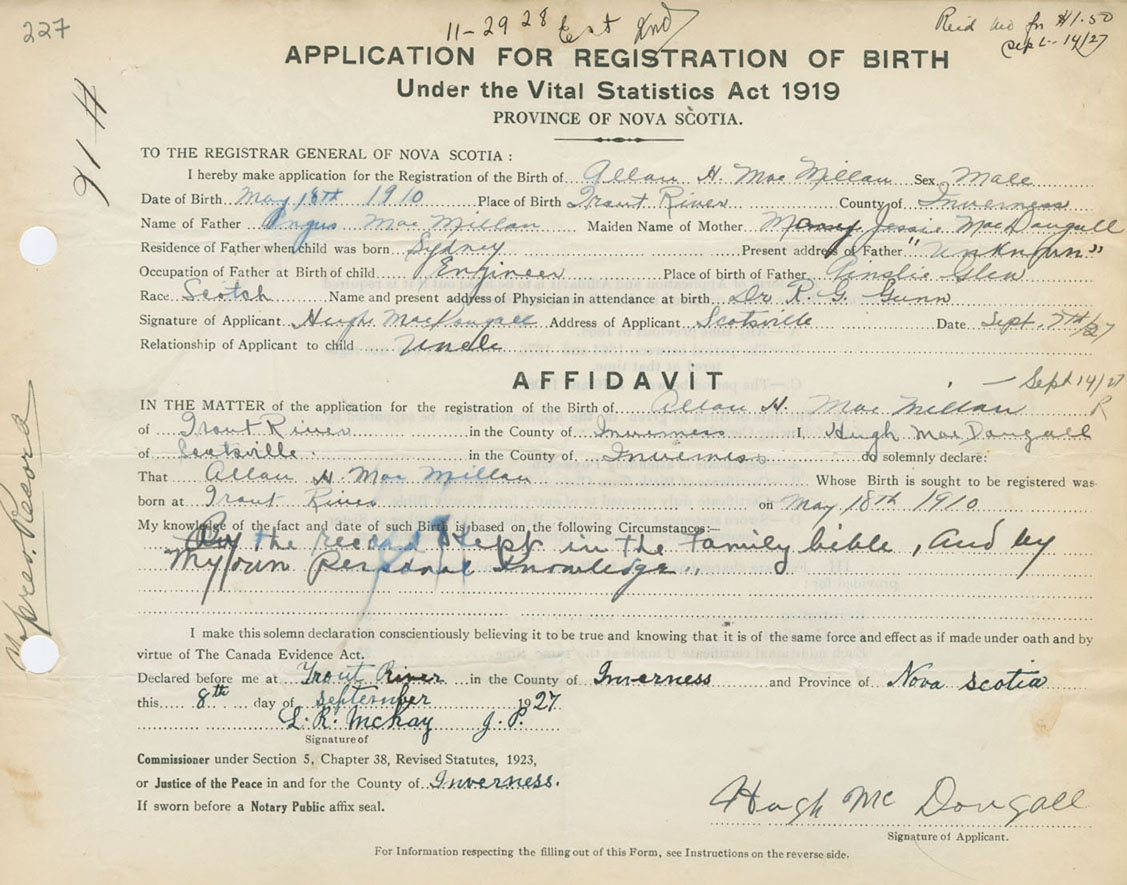 227
11-29 28
Sept. 14/27 $1.50
APPLICATION FOR REGISTRATION OF BIRTH
Under the Vital Statistics Act 1919
PROVINCE OF NOVA SCOTIA.
91 H
TO THE REGISTRAR GENERAL OF NOVA SCOTIA :
I hereby make application for the Registration of the Birth of Allan H. Mac Millan Sex Male
Date of Birth May 18th 1910 Place of Birth Trout River County of Inverness
Name of Father Angus Mac Millan Maiden Name of Mother Jessie MacDougall
Residence of Father when child was born Sydney Present address of Father "Unknown"
Occupation of Father at Birth of child Engineer Place of birth of Father Ainslie Glen
Race Scotch Name and present address of Physician in attendance at birth Dr R. G. Gunn
Signature of Applicant Hugh MacDougall Address of Applicant Scotsville Date Sept. 7th/27
Relationship of Applicant to child Uncle
AFFIDAVIT
Sept 14/27
R
IN THE MATTER of the application for the registration of the Birth of Allan H. Mac Millan
of Trout River in the County of Inverness I, Hugh MacDougall
of Scotsville in the County of Inverness do solemnly declare:
That Allan H. Mac Millan Whose Birth is sought to be registered was
born at Trout River on May 18th 1910
My knowledge of the fact and date of such Birth is based on the following Circumstances:—
By the record Kept in the family bible, And by
My own Personal Knowledge.
I make this solemn declaration conscientiously believing it to be true and knowing that it is of the same force and effect as if made under oath and by
virtue of The Canada Evidence Act.
Declared before me at Trout River in the County of Inverness and Province of Nova Scotia
this 8th day of September 1927.
L. R. McKay J.P.
Signature of
Commissioner under Section 5, Chapter 38, Revised Statutes, 1923,
or Justice of the Peace in and for the County of Inverness.
If sworn before a Notary Public affix seal.
Hugh Mc Dougall
Signature of Applicant.
For Information respecting the filling out of this Form, see Instructions on the reverse side.